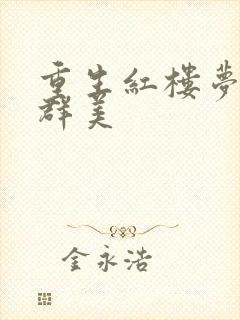 重生紅樓夢
群美
金永浩